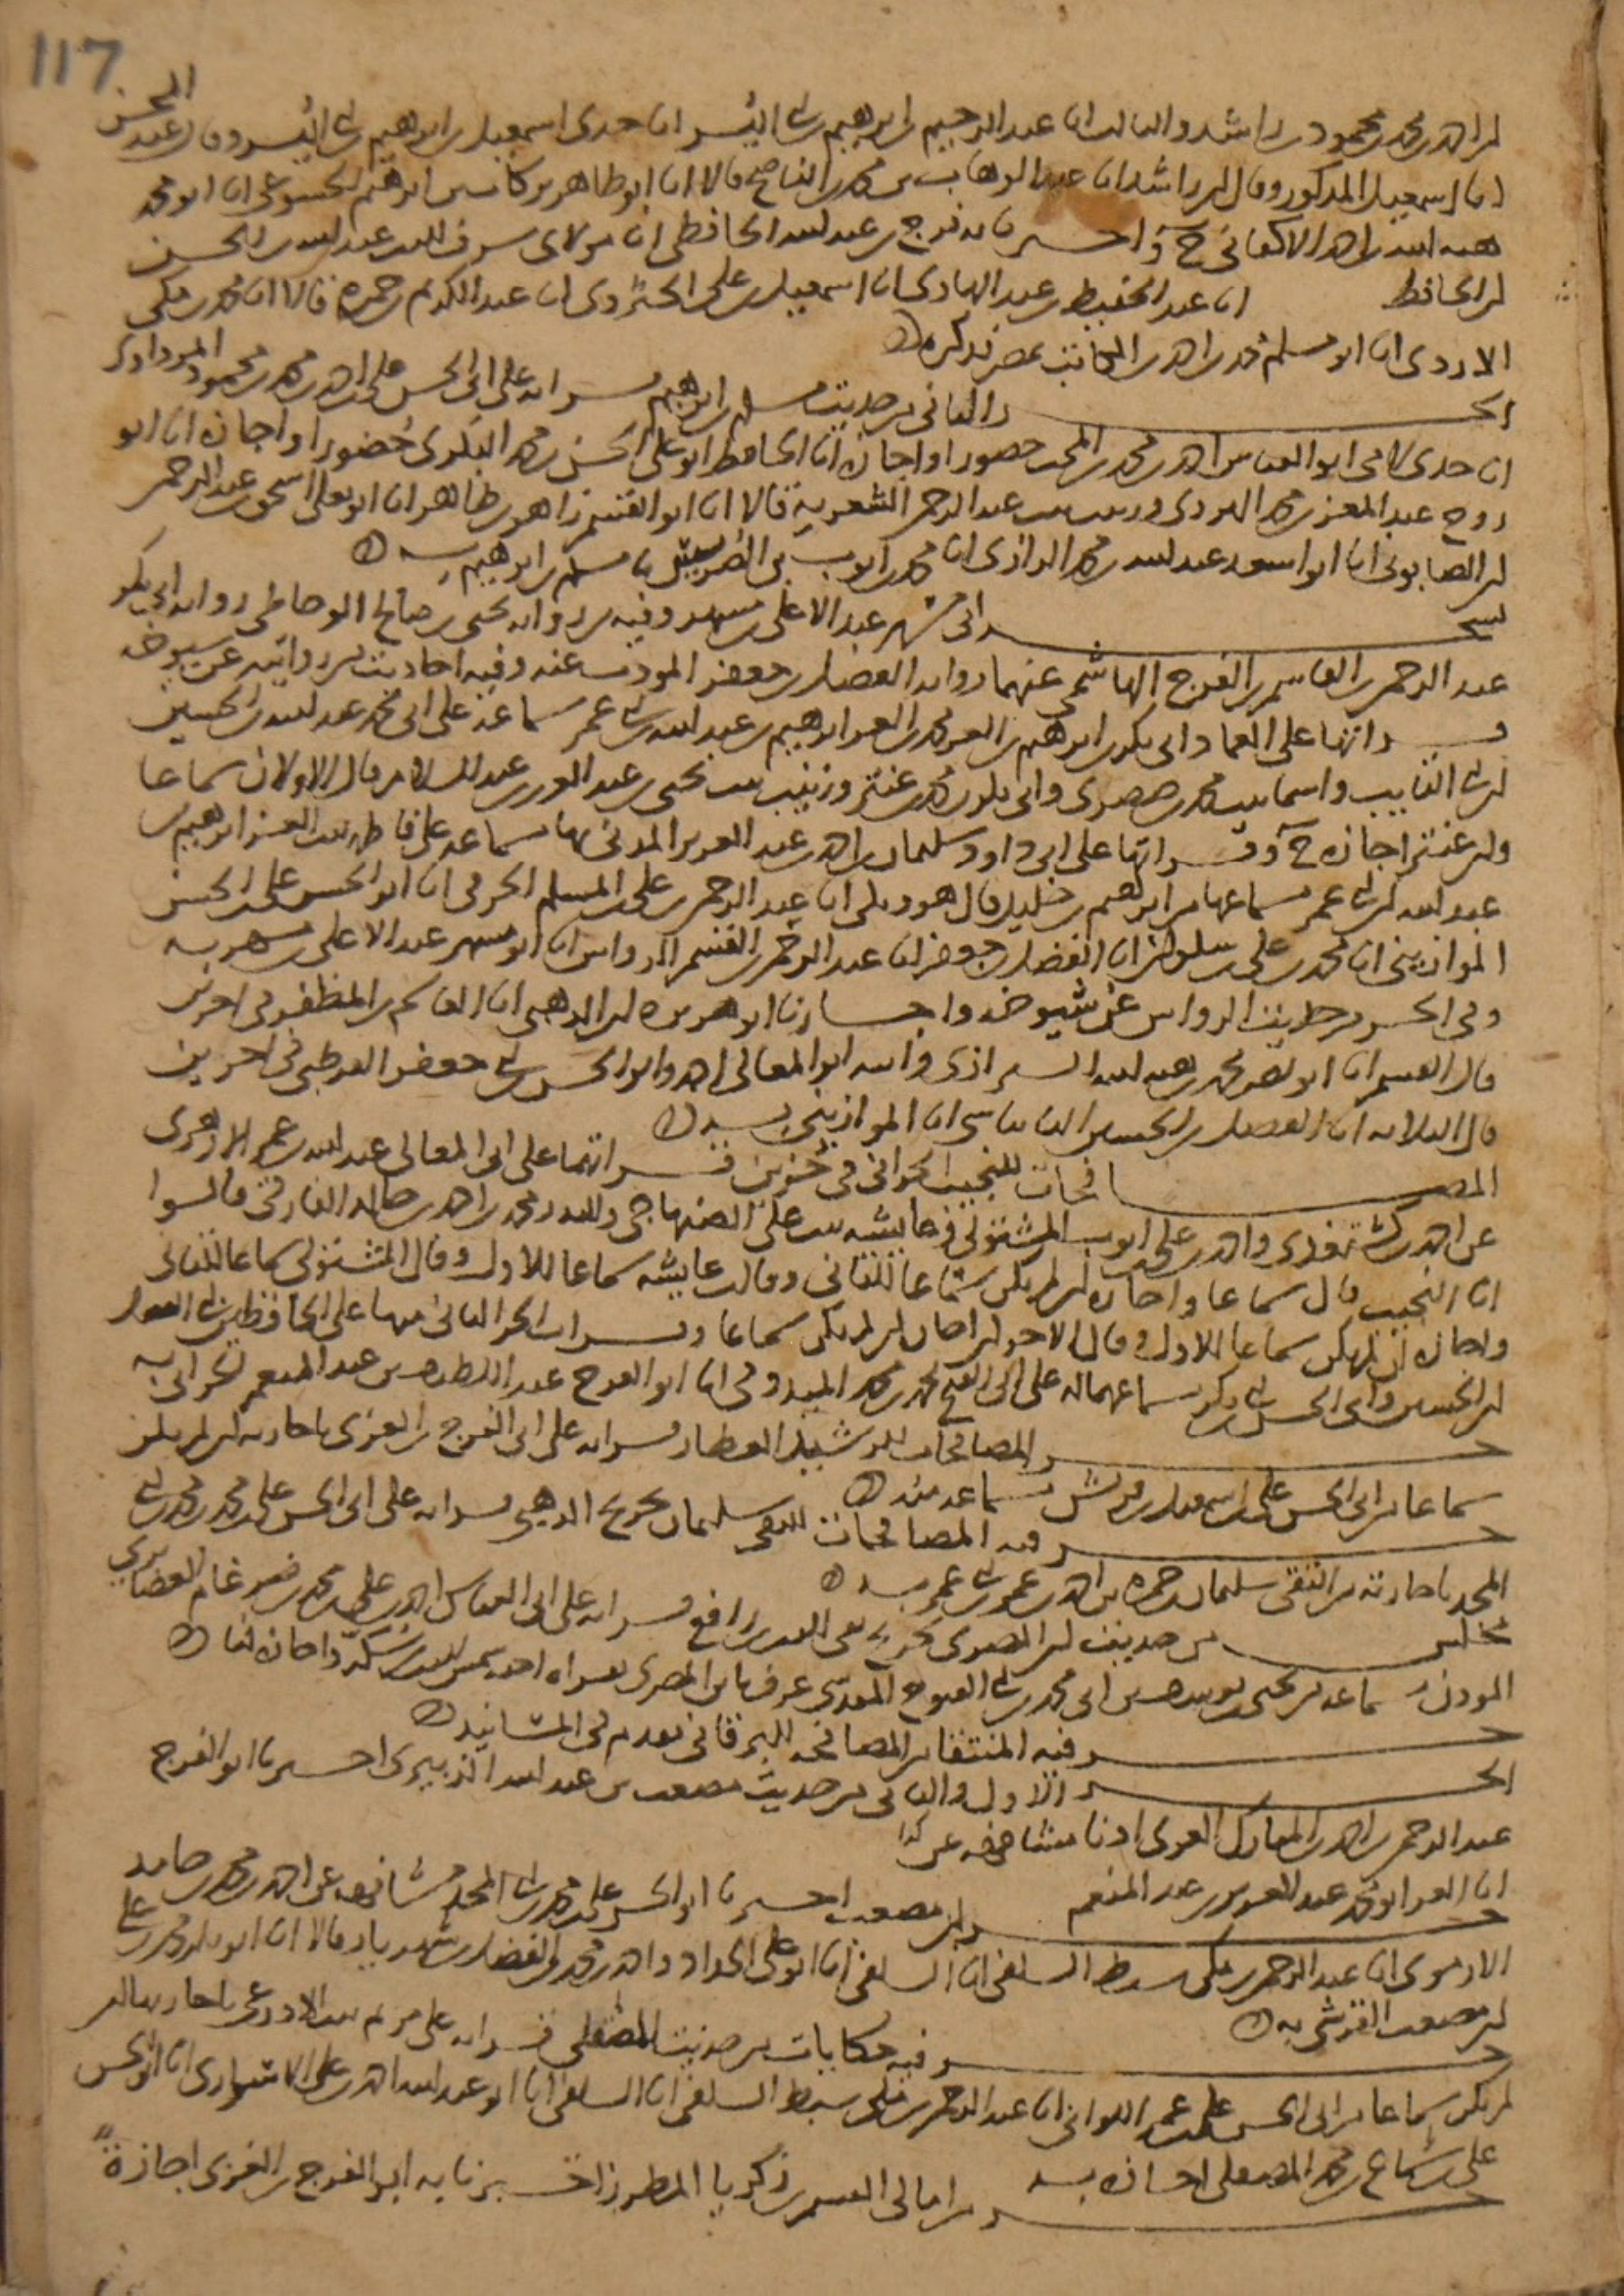 117
بن احمد بن محمد بن محمود بن راشد والثالث انا عبد الرحيم بن ابرهيم بن ابي اليسر انا جدي اسمعيل بن ابرهيم بن ابي اليسر وقال عبد المحسن
انا اسمعيل المذكور وقال ابن راشد انا عبد الوهاب بن محمد بن الناصح قالا انا ابو طاهر بركات بن ابرهيم الخشوعي انا ابو محمد
هبة الله بن احمد الاكفاني ح واخبرنا به فرج بن عبد الله الحافظي انا مولاي شرف الدين عبد الله بن الحسن
ابن الحافظ انا عبد الحفيظ بن عبد الهادي انا اسمعيل بن علي الجنزوي انا عبد الكريم بن حمزة قالا انا محمد بن مكي
الازدي انا ابو مسلم محمد بن احمد الكاتب بمصر فذكره
الجزء الثاني من حديث مسلم بن ابرهيم قراته على ابي الحسن علي بن احمد بن محمد بن محمود المرداوي
انا جدي لامي ابو العباس احمد بن محمد بن المحب حضورا واجازة انا الحافظ ابو علي الحسن بن محمد البكري حضورا واجازة انا ابو
روح عبد المعز بن محمد الهروي وزينب بنت عبد الرحمن الشعرية قالا انا ابو القسم زاهر بن طاهر انا ابو يعلى اسحق بن عبد الرحمن
ابن الصابوني انا ابو سعيد عبد الله بن محمد الرازي انا محمد بن ايوب بن الضريس نا مسلم بن ابرهيم به
نسخة ابي مسهر عبد الاعلى بن مسهر وفيه من رواية يحيى بن صالح الوحاظي رواية ابي بكر
عبد الرحمن بن القاسم بن الفرج الهاشمي عنهما رواية الفضل بن جعفر المؤذن عنه وفيه احاديث من روايته عن شيوخه
قراتها على العماد ابي بكر بن ابرهيم بن العز محمد بن العز ابرهيم بن عبد الله بن ابي عمر بسماعه على ابي محمد عبد الله بن الحسين
ابن ابي التايب واسما بنت محمد بن صصرى وابي بكر بن محمد بن عنتر وزينب بنت يحيى بن عبد العزيز بن عبد السلام قال الاولان سماعا
وابن عنتر اجازة ح وقراتها على ابي داود سليمان بن احمد بن عبد العزيز المدني بها بسماعه على فاطمة بنت العز ابرهيم بن
عبد الله بن ابي عمر بسماعها من ابرهيم بن خليل قال هو ومكي انا عبد الرحمن بن علي بن المسلم الخرقي انا ابو الحسن علي بن الحسن
الموازيني انا محمد بن علي بن سلوان انا الفضل بن جعفر انا عبد الرحمن بن القسم الرواس انا ابو مسهر عبد الاعلى بن مسهر به
وفي الجزء من حديث الرواس عن شيوخه واجازنا ابو هريرة ابن الذهبي انا القاسم بن المظفر في اخرين
قال القسم انا ابو نصر محمد بن هبة الله الشيرازي وابنه ابو المعالي احمد وابو الحسن بن ابي جعفر القرطبي في اخرين
قال الثلاثة انا الفضل بن الحسين البانياسي انا الموازيني بسنده
المصافحات للنجيب الحراني في جزئين قراتهما على ابي المعالي عبد الله بن عمر الازهري
عن احمد بن كشتغدي واحمد بن علي بن ايوب المشتولي وعايشة بنت علي الصنهاجي ومحمد بن احمد بن خالد الفارقي قالوا
انا النجيب قال سماعا واجازة ان لم يكن سماعا للثاني وقالت عايشة سماعا للاول وقال المشتولي سماعا للثاني
واجازة ان لم يكن سماعا للاول وقال الاخر اجازة ان لم يكن سماعا وقرات الجزء الثاني منها على الحافظين ابي الفضل
ابن الحسين وابي الحسن بن ابي بكر بسماعهما له على ابي الفتح محمد بن محمد الميدومي انا ابو الفرج عبد اللطيف بن عبد المنعم الحراني به
جزء المصافحات للرشيد العطار قراته على ابي الفرج بن الغزي باجازته ان لم يكن
سماعا من ابي الحسن علي بن اسمعيل بن قريش بسماعه منه
جزء فيه المصافحات للتقي سليمان تخريج الذهبي قراته على ابي الحسن علي بن محمد بن محمد بن ابي
المجد باجازته من التقي سليمان بن حمزة بن احمد بن عمر بن ابي عمر به
مجلس من حديث ابن المصري تخريج تقي الدين بن رافع قراته على ابي العباس احمد بن علي بن محمد بن ضرغام الغضايري
المؤذن بسماعه من يحيى بن يوسف بن ابي محمد بن ابي الفتوح المقدسي عرف بابن المصري بقراءة احمد بن سكر واجازة لنا
جزء فيه المنتقا من المصافحة للبرقاني تقدم في المسانيد
الجزء الاول والثاني من حديث مصعب بن عبد الله الزبيري اخبرنا ابو الفرج
عبد الرحمن بن احمد بن المبارك الغزي اذنا مشافهة عن
انا العز ابو محمد عبد العزيز بن عبد المنعم
جزء ابن مصعب اخبرنا ابو الحسن علي بن محمد بن ابي المجد مشافهة عن احمد بن محمد بن حامد
الارموي انا عبد الرحمن بن مكي سبط السلفي انا السلفي انا ابو علي الحداد واحمد بن محمد بن الفضل بن شهريار قالا انا ابو بكر محمد بن علي
ابن مصعب القرشي به
جزء فيه حكايات من حديث المصقلي قراته على مريم بنت الاذرعي باجازته ان
لم يكن سماعا من ابي الحسن علي بن عمر الواني انا عبد الرحمن بن مكي سبط السلفي انا السلفي انا ابو عبد الله احمد بن علي الاسواري انا ابو الحسن
علي بن شجاع بن محمد المصقلي اجازة به
جزء من امالي القسم بن زكريا المطرز اخبرنا به ابو الفرج بن الغزي اجازة